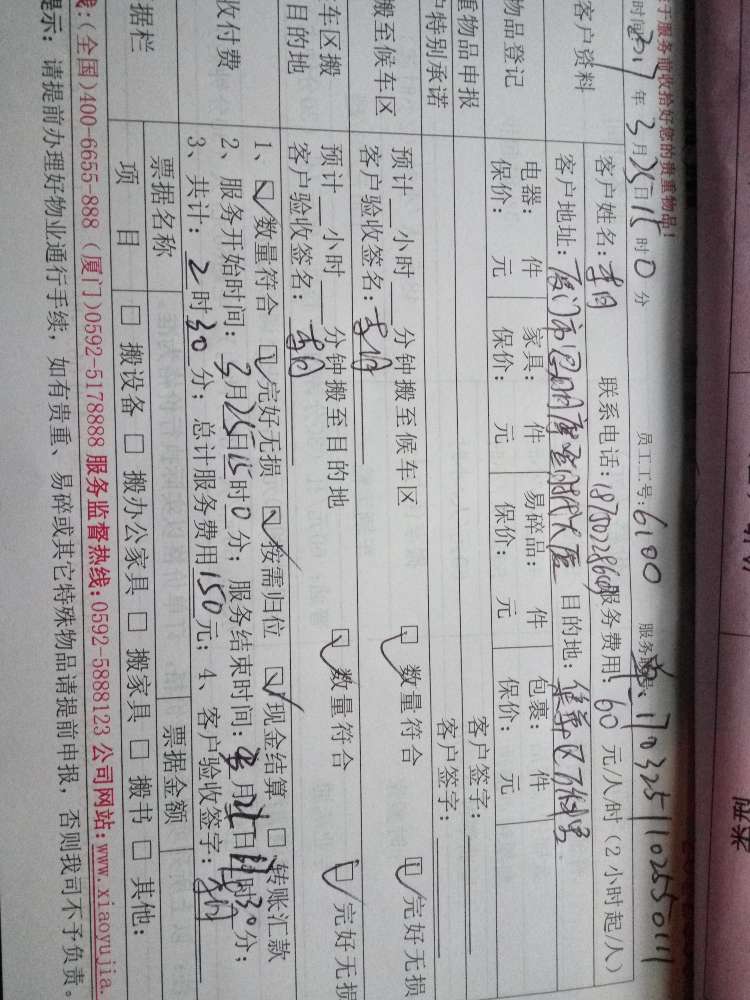 于服务前收拾好您的贵重物品!
时间:2017年3月25日15时0分 员工工号:6100 服务 170325110255011
客户资料
客户姓名:李 联系电话: 服务费用:60元/人/时(2小时起/人)
客户地址:厦门市思明 目的地:集美区
物品登记
电器: 件 家具: 件 易碎品: 件 包裹: 件
保价: 元 保价: 元 保价: 元 保价: 元
重物品申报 客户签字:
户特别承诺 客户签字:
搬至候车区
预计__小时__分钟搬至候车区 数量符合 完好无损
客户验收签名:李
车区搬
目的地
预计__小时__分钟搬至目的地 数量符合 完好无损
客户验收签名:李
收付费
1、数量符合 完好无损 按需归位 现金结算 转账汇款
2、服务开始时间:3月25日15时0分;服务结束时间:月25日时30分;
3、共计:2时30分;总计服务费用150元;4、客户验收签字:李
据栏
票据名称 票据金额
项 目 搬设备 搬办公家具 搬家具 搬书 其他:
线:(全国)400-6655-888 (厦门)0592-5178888 服务监督热线:0592-5888123 公司网站:www.xiaoyujia.
提示:请提前办理好物业通行手续,如有贵重、易碎或其它特殊物品请提前申报,否则我司不予负责。